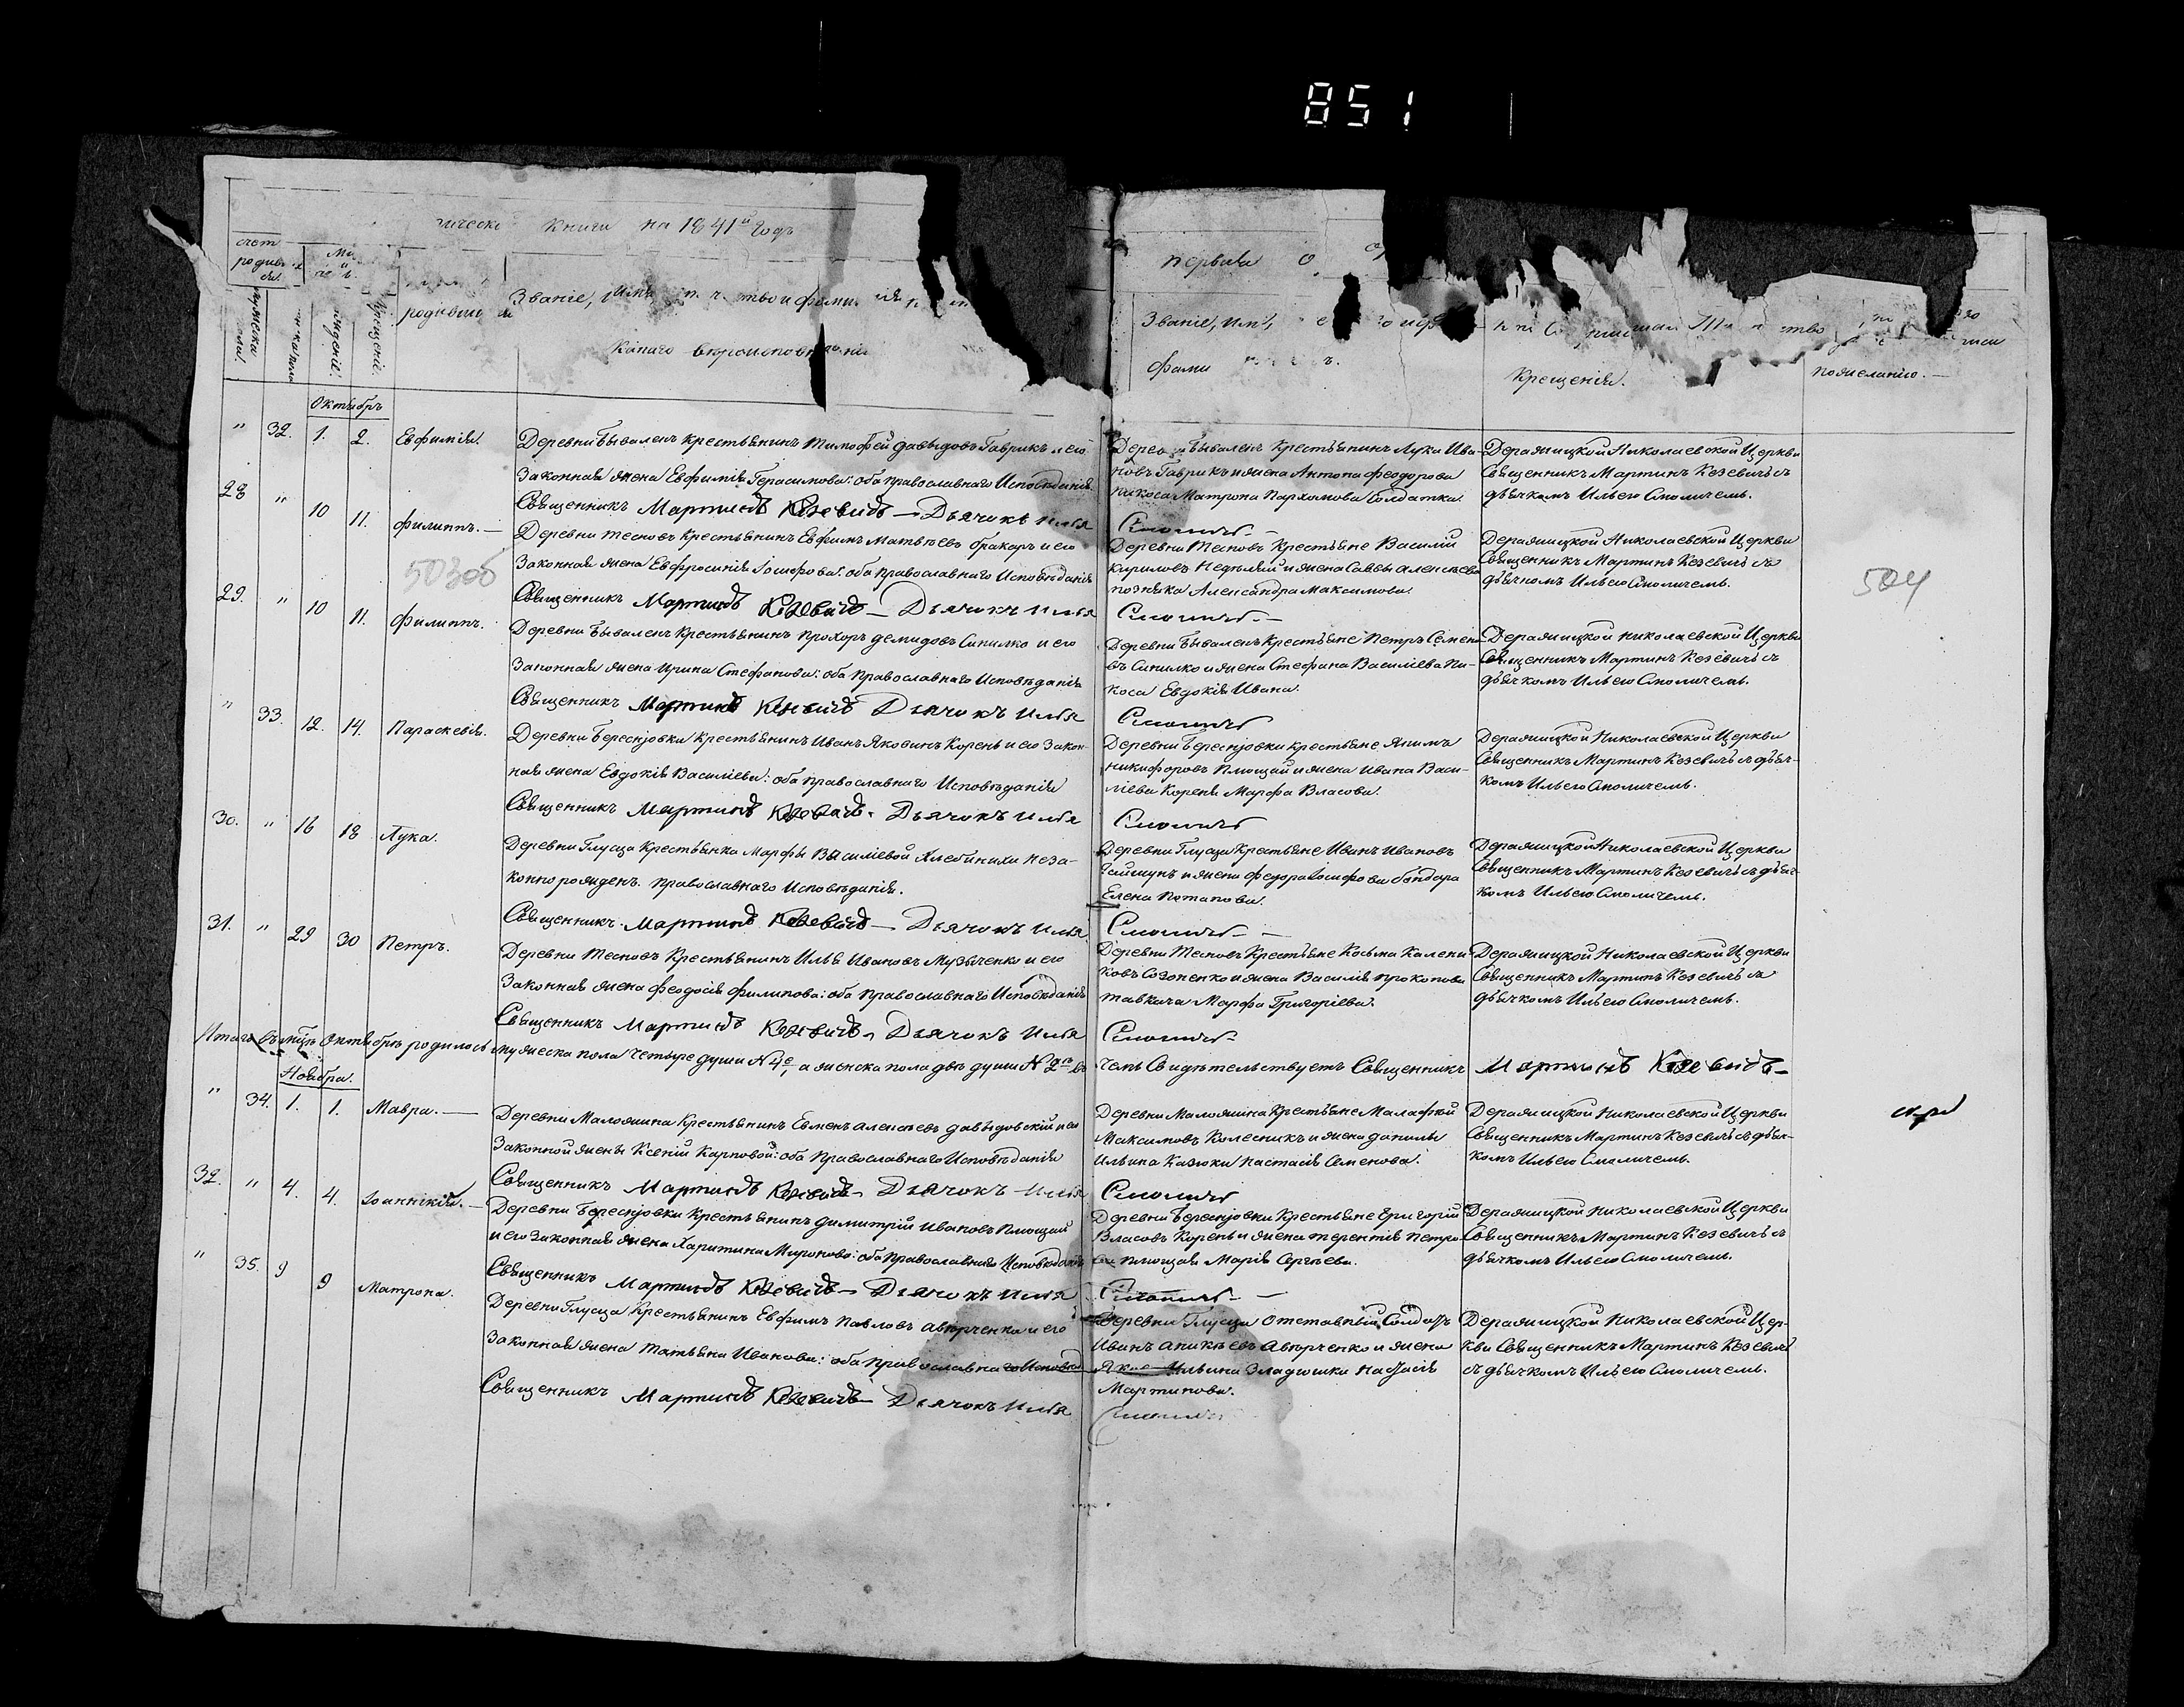 851
Книги на 1841й Годъ
первая
счет родивш
Званіе, имя
Какого вѣроисповѣданія
Званіе, имя,
Крещенія.
по желанію. —
Октябрь
" 32. 1. 2. Евфимія.
Деревни Бывалекъ крестьянинъ Тимофей Давыдовъ Гаврикъ и его
Законная жена Евфимія Герасимова: оба православнаго Исповѣданія
Священникъ Мартинъ Кезевичъ — Дьячокъ Илья Смоличъ —
Бывалекъ Крестьянинъ Лука Ива-
новъ Гаврикъ и жена Антона Феодорова
Никоса Матрона Пархомова Солдатка.
Деражицкой Николаевской Церкви
Священникъ Мартинъ Кезевичъ съ
дьячкомъ Ильею Смоличемъ.
28 " 10 11. Филиппъ. —
Деревни Тесновъ Крестьянинъ Евфимъ Матвѣевъ и его
Законная жена Евфросинія Іосифова: оба православнаго Исповѣданія
Священникъ Мартинъ Кезевичъ — Дьячокъ Илья Смоличъ —
Деревни Тесновъ Крестьяне Василій
Кириловъ и жена Саввы Алексѣева
позняка Александра Максимова.
Деражицкой Николаевской Церкви
Священникъ Мартинъ Кезевичъ съ
дьячкомъ Ильею Смоличемъ.
503об
504
29. " 10 11. Филиппъ.
Деревни Бывалекъ Крестьянинъ Прохоръ Демидовъ Синилко и его
Законная жена Ирина Стефанова: оба православнаго Исповѣданія
Священникъ Мартинъ Кезевичъ Дьячокъ Илья Смоличъ
Деревни Бывалекъ Крестьяне Петръ Семено-
въ Синилко и жена Стефана Василіева Ни-
коса Евдокія Ивана.
Деражицкой Николаевской Церкви
Священникъ Мартинъ Кезевичъ съ
дьячкомъ Ильею Смоличемъ.
" 33. 12. 14. Параскевія.
Деревни Береснѣовки Крестьянинъ Иванъ Яковинъ Корень и его Закон-
ная жена Евдокія Василіева: оба православнаго Исповѣданія
Священникъ Мартинъ Кезевичъ. Дьячокъ Илья Смоличъ
Деревни Береснѣовки крестьяне Якимъ
Никифоровъ Плющай и жена Ивана Васи-
ліева Кореня Марфа Власова.
Деражицкой Николаевской Церкви
Священникъ Мартинъ Кезевичъ съ дьяч-
комъ Ильею Смоличемъ.
30. " 16 18 Лука.
Деревни Глусца Крестьянка Марфы Василіевой Хлебинихи неза-
конно рожденъ. Православнаго Исповѣданія.
Священникъ. Мартинъ Кезевичъ — Дьячокъ Илья Смоличъ —
Деревни Глусца Крестьяне Иванъ Ивановъ
и жена Федора Іосифова бондара
Елена Потапова.
Деражицкой Николаевской Церкви
Священникъ Мартинъ Кезевичъ съ дьяч-
комъ Ильею Смоличемъ.
31. " 29 30 Петръ.
Деревни Тесновъ Крестьянинъ Илья Ивановъ Музыченко и его
Законная жена Феодосія Филипова: оба православнаго Исповѣданія
Священникъ Мартинъ Кезевичъ. Дьячокъ Илья Смоличъ
Деревни Тесновъ Крестьяне Косьма Калени-
ковъ Созоненко и жена Василія Прокопова
ткача Марфа Григоріева.
Деражицкой Николаевской Церкви
Священникъ Мартинъ Кезевичъ съ
дьячкомъ Ильею Смоличемъ.
Итого въ мцѣ Октябрѣ родилось мужеска пола Четыре души № 4е, а женска пола двѣ души № 2е въ чемъ Свидѣтельствуетъ Священникъ Мартинъ Кезевичъ —
Ноября.
" 34. 1. 1. Мавра. —
Деревни Маложина Крестьянинъ Евменъ Алексѣевъ Давыдовскій и его
Законной жены Ксеніи Карповой: оба Православнаго Исповѣданія
Священникъ Мартинъ Кезевичъ Дьячокъ Илья Смоличъ
Деревни Маложина Крестьяне Малафей
Максимовъ Колесникъ и жена Данилы
Ильина Казюки Настасія Семенова.
Деражицкой Николаевской Церкви
Священникъ Мартинъ Кезевичъ съ дьяч-
комъ Ильею Смоличемъ.
32. " 4. 4. Іоанникій. —
Деревни Береснѣовки Крестьянинъ Димитрій Ивановъ Плющай
и его Законная жена Харитина Миронова: оба Православнаго Исповѣданія
Священникъ Мартинъ Кезевичъ — Дьячокъ Илья Смоличъ —
Деревни Береснѣовки Крестьяне Григорій
Власовъ Корень и жена Терентія Петро-
ва Плющая Марія Сергѣева.
Деражицкой Николаевской Церкви
Священникъ Мартинъ Кезевичъ съ
дьячкомъ Ильею Смоличемъ.
" 35. 9 9 Матрона.
Деревни Глусца Крестьянинъ Евфимъ Павловъ Аверченко и его
Законная жена Татьяна Иванова: оба православнаго Исповѣд
Священникъ Мартинъ Кезевичъ — Дьячокъ Илья Смоличъ
Деревни Глусца Отставный Солдатъ
Иванъ Аникѣевъ Аверченко и жена
Ильина Эладюшки Настасія
Мартинова.
Деражицкой Николаевской Цер-
кви Священникъ Мартинъ Кезевичъ
съ дьячкомъ Ильею Смоличемъ.